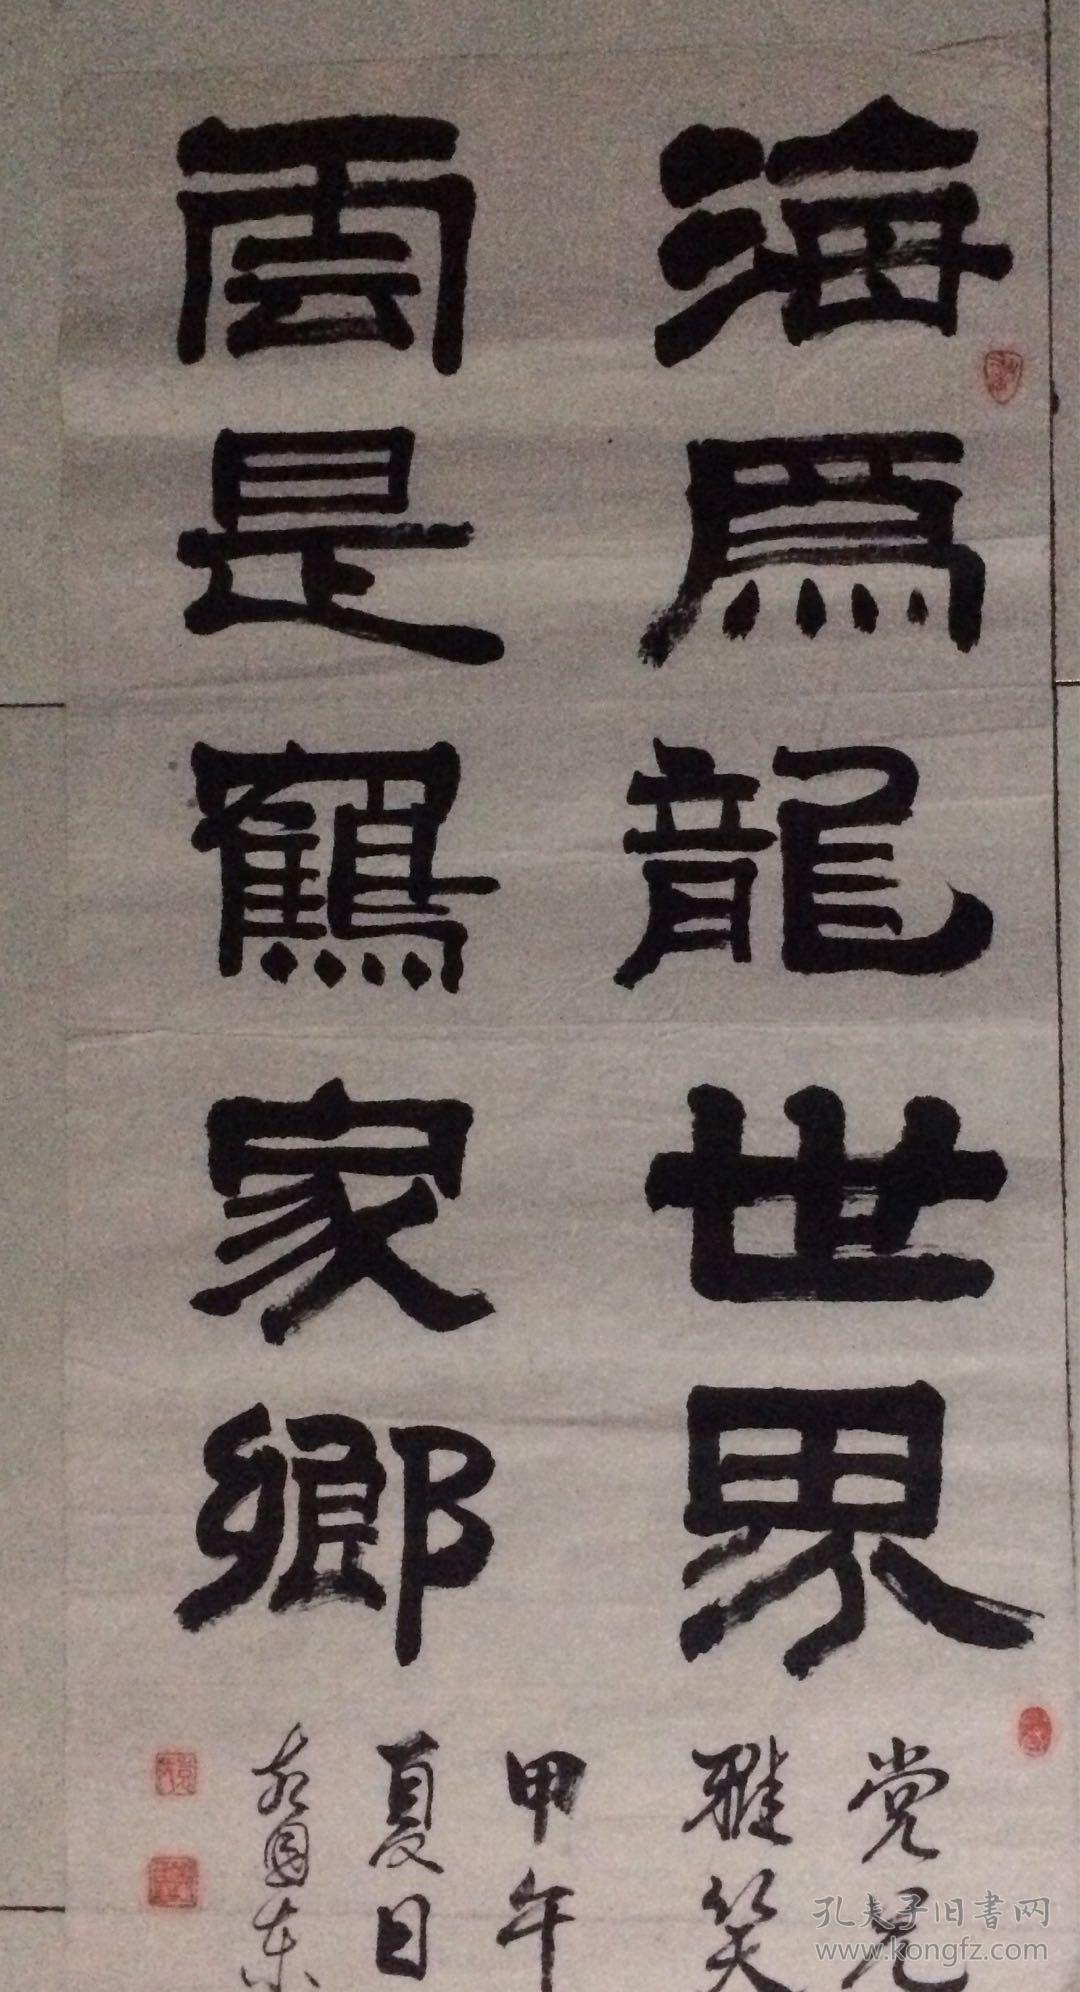 海為龍世界
雲是鶴家鄉
党兄
雅笑
甲午
夏日
孔夫子旧书网
www.kongfz.com